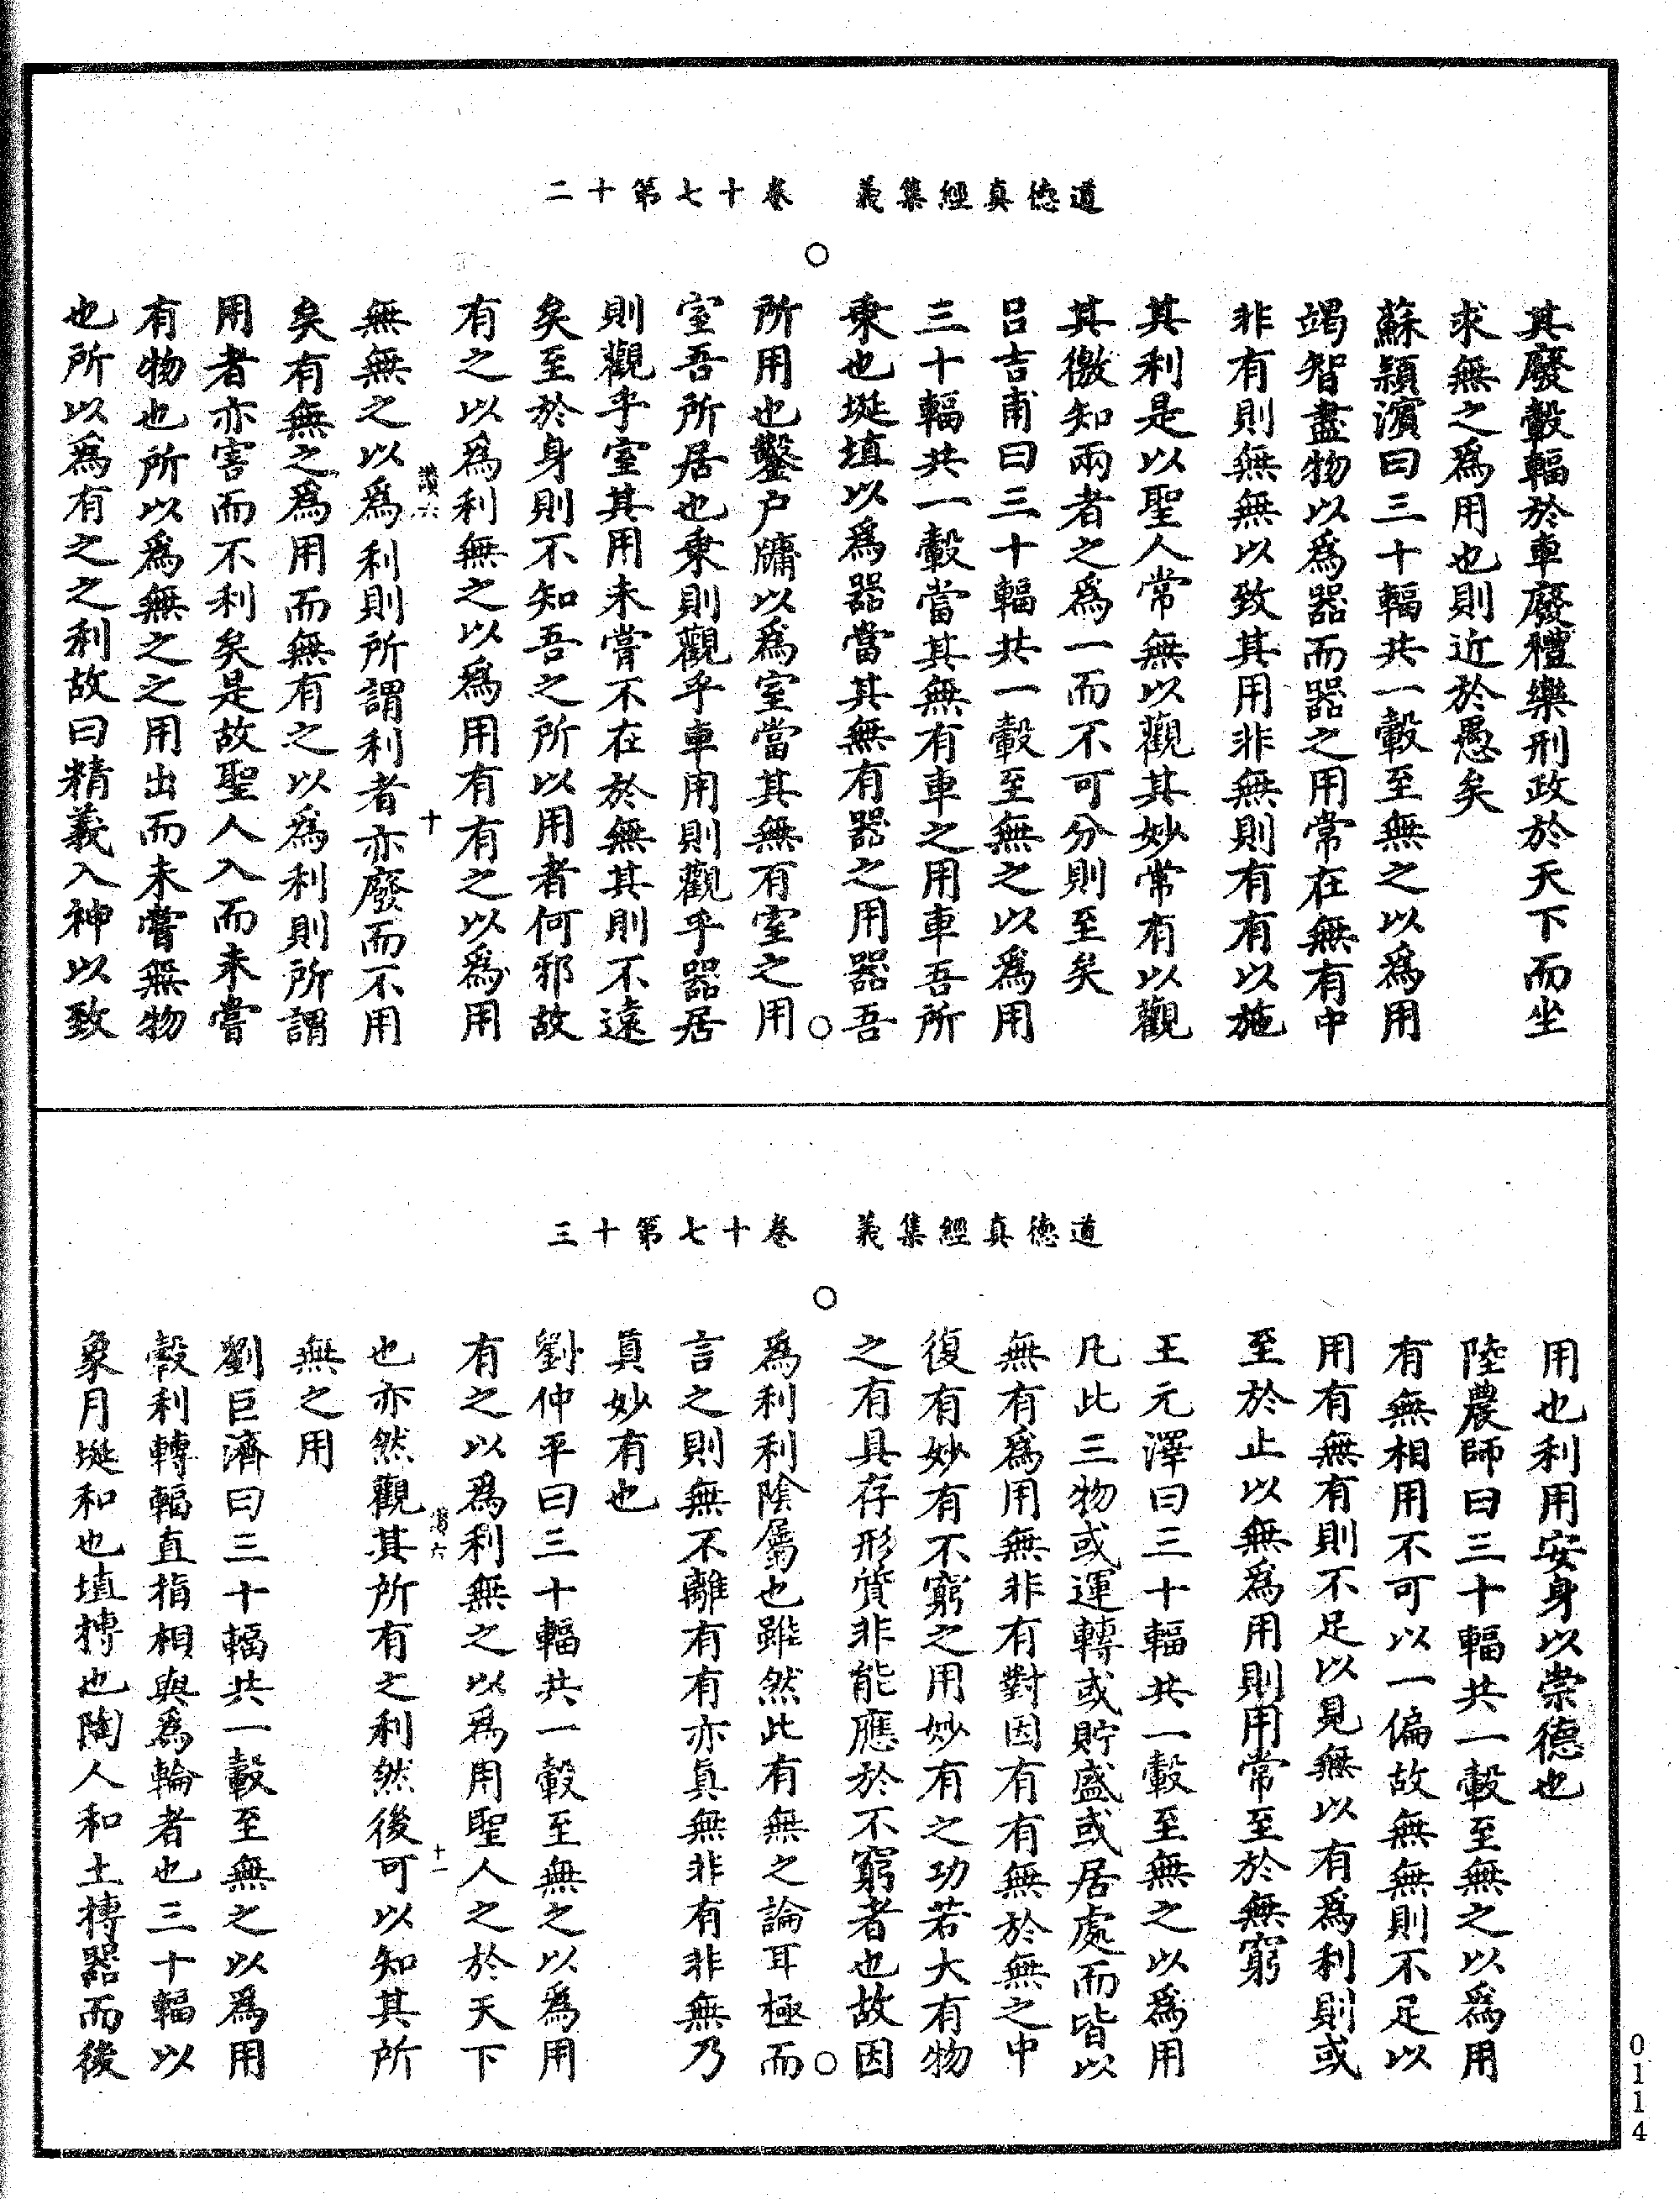 道德真經集義　卷十七第十二
其廢轂輻於車廢禮樂刑政於天下而坐
求無之爲用也則近於愚矣
蘇潁濱曰三十輻共一轂至無之以爲用
竭智盡物以爲器而器之用常在無有中
非有則無無以致其用非無則有有以施
其利是以聖人常無以觀其妙常有以觀
其徼知兩者之爲一而不可分則至矣
呂吉甫曰三十輻共一轂至無之以爲用
三十輻共一轂當其無有車之用車吾所
乗也埏埴以爲器當其無有器之用器吾
所用也鑿户牖以爲室當其無有室之用
室吾所居也乗則觀乎車用則觀乎器居
則觀乎室其用未嘗不在於無其則不遠
矣至於身則不知吾之所以用者何邪故
有之以爲利無之以爲用有有之以爲用
讃六
十
無無之以爲利則所謂利者亦廢而不用
矣有無之爲用而無有之以爲利則所謂
用者亦害而不利矣是故聖人入而未嘗
有物也所以爲無之之用出而未嘗無物
也所以爲有之之利故曰精義入神以致
道德真經集義　卷十七第十三
用也利用安身以崇德也
陸農師曰三十輻共一轂至無之以爲用
有無相用不可以一偏故無無則不足以
用有無有則不足以見無以有爲利則或
至於止以無爲用則用常至於無窮
王元澤曰三十輻共一轂至無之以爲用
凡此三物或運轉或貯盛或居處而皆以
無有爲用無非有對因有有無於無之中
復有妙有不窮之用妙有之功若大有物
之有具存形質非能應於不窮者也故因
爲利利陰屬也雖然此有無之論耳極而
言之則無不離有有亦真無非有非無乃
真妙有也
劉仲平曰三十輻共一轂至無之以爲用
有之以爲利無之以爲用聖人之於天下
讃六
十一
也亦然觀其所有之利然後可以知其所
無之用
劉巨濟曰三十輻共一轂至無之以爲用
轂利轉輻直指相與爲輪者也三十輻以
象月埏和也埴摶也陶人和土摶器而後
0114